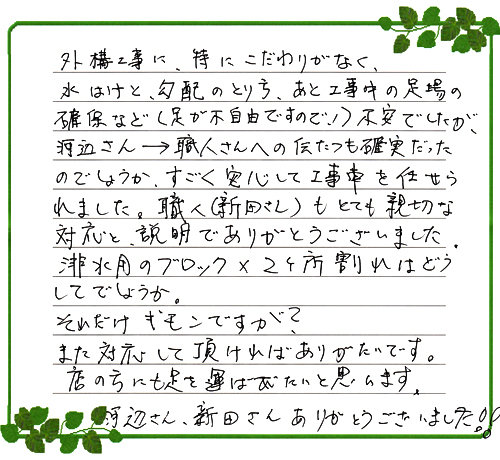 外構工事に、特にこだわりがなく、
水はけと、勾配のとり方、あと工事中の足場の
確保など(足が不自由ですので、!)不安でしたが、
河辺さん→職人さんへの伝たつも確実だった
のでしょうか、すごく安心して工事を任せら
れました。職人(新田さん)もとても親切な
対応と、説明でありがとうございました。
排水用のブロック×2ヶ所割れはどう
してでしょうか。
それだけギモンですが?
また対応して頂ければありがたいです。
店の方にも足を運びたいと思います。
河辺さん、新田さんありがとうございました!!